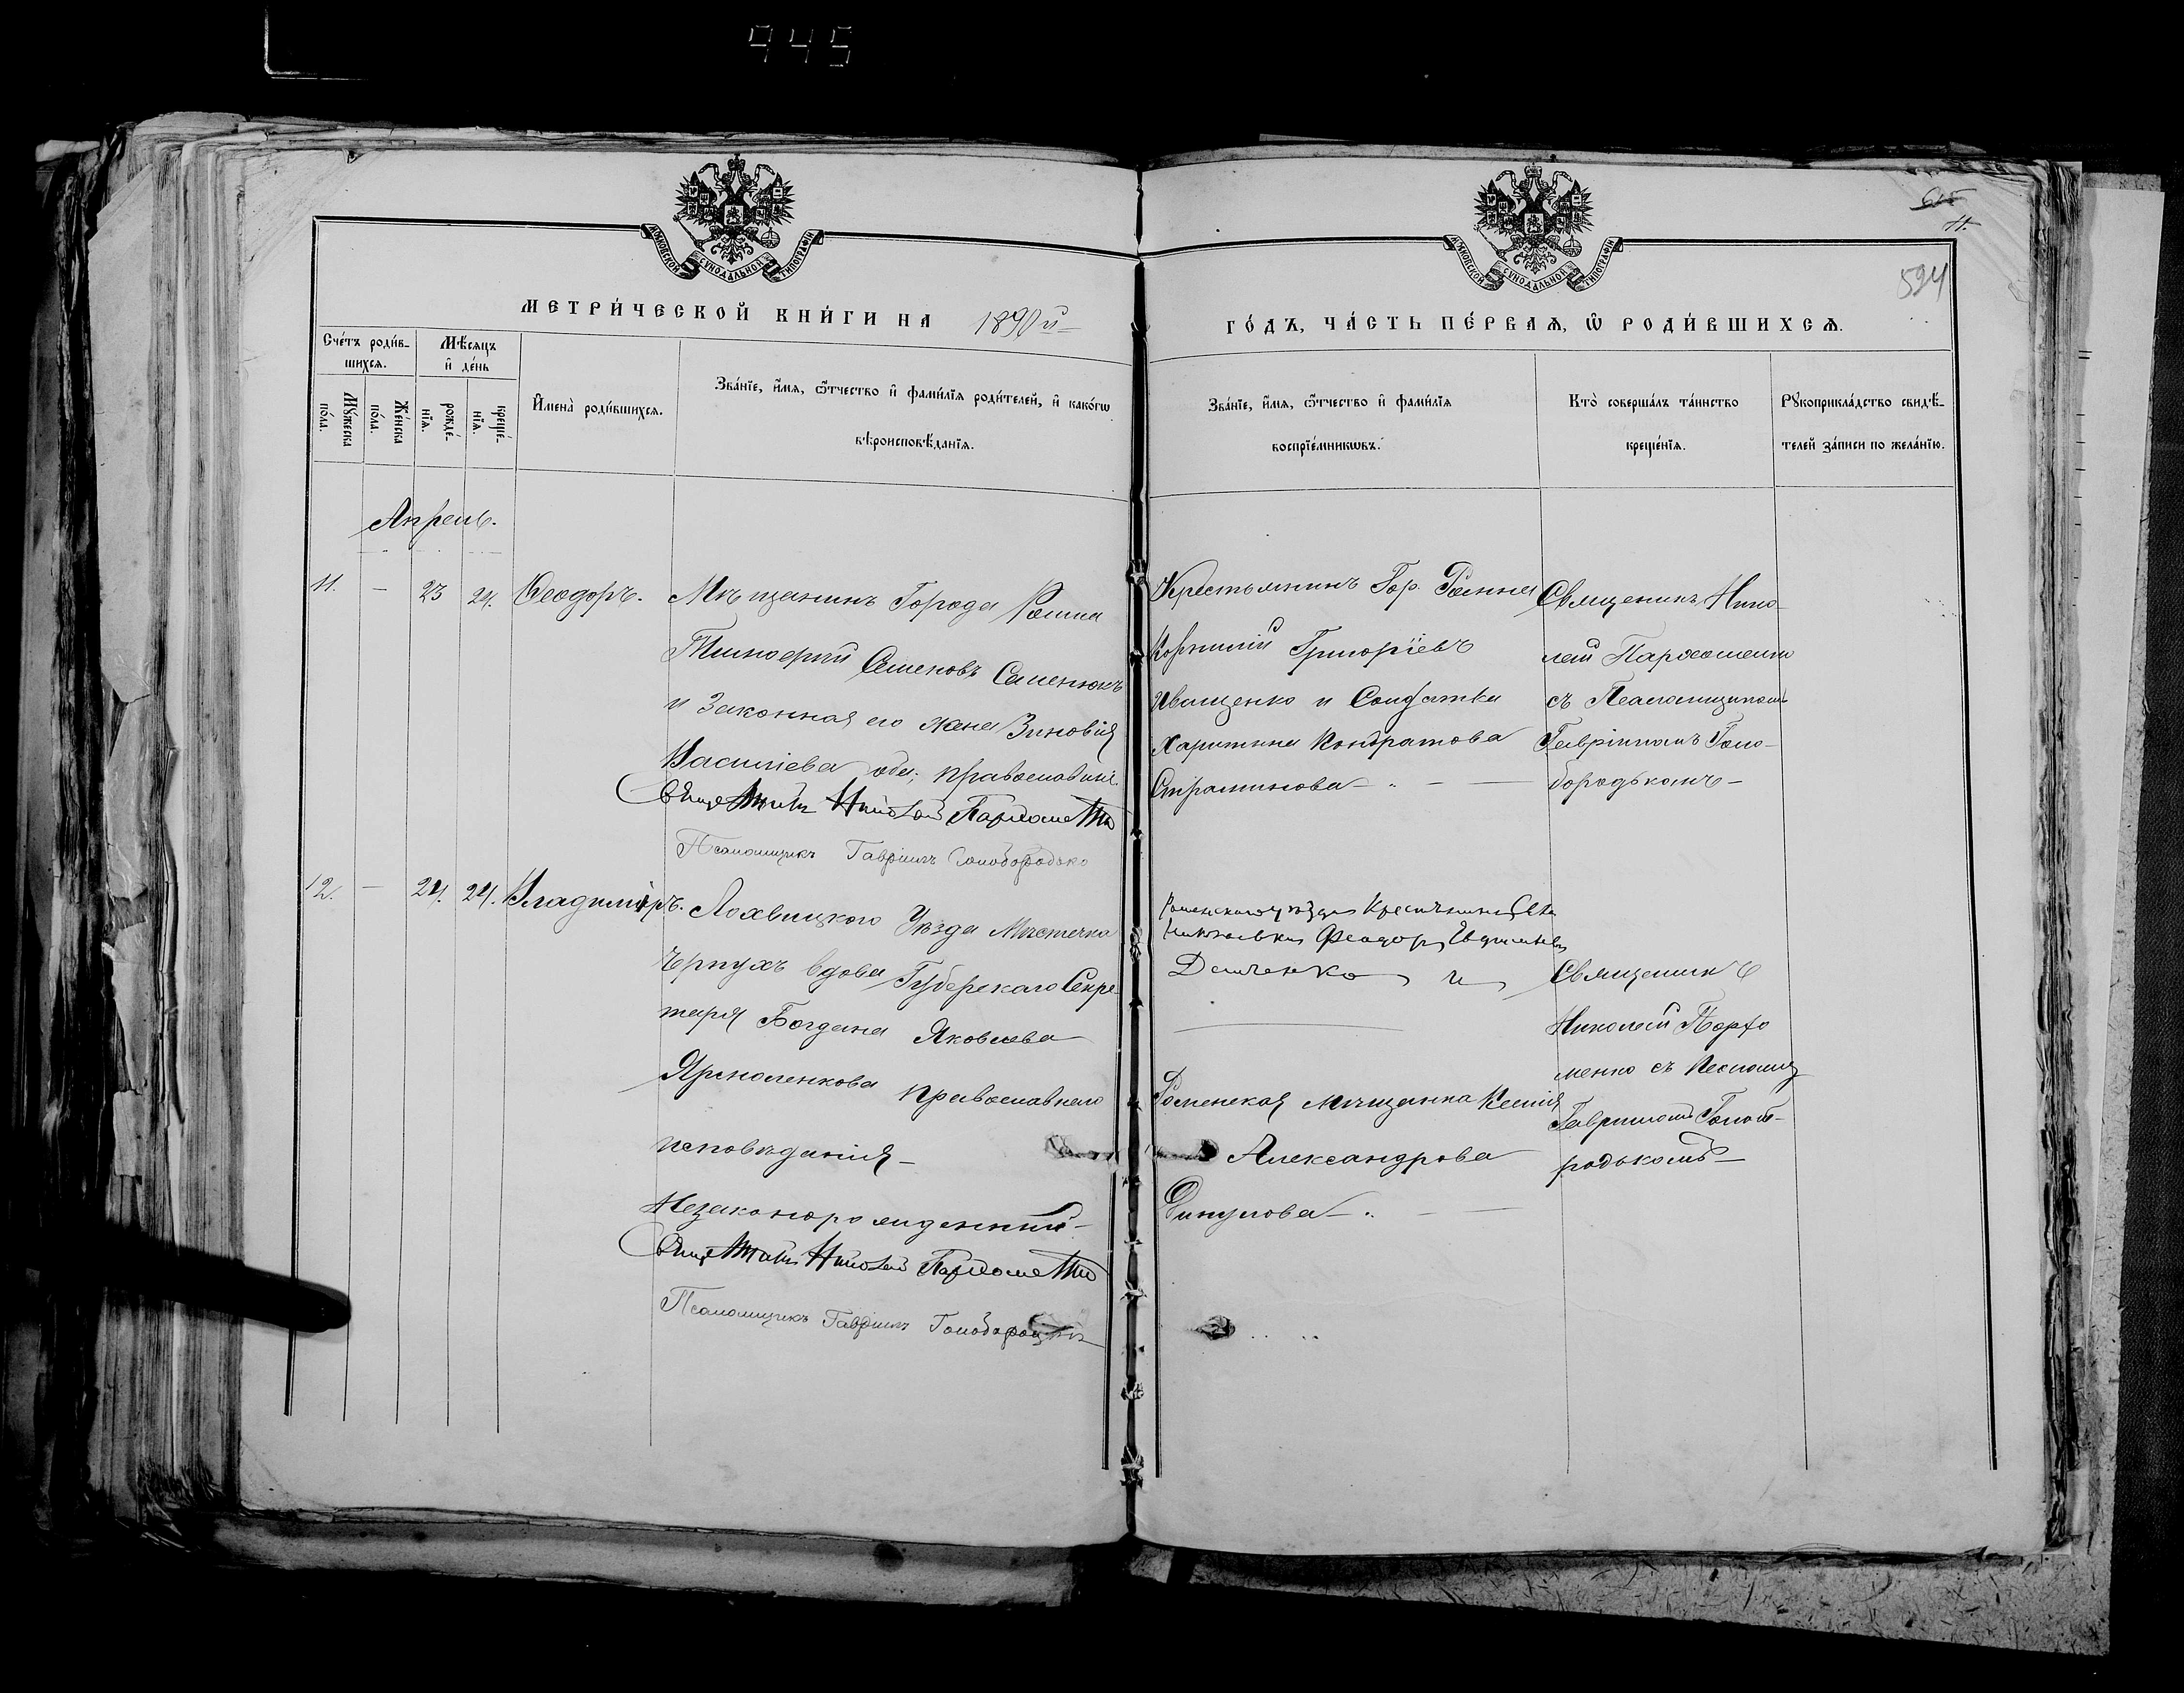 945
615
11.
524
МОСКОВСКОЙ СѴНОДАЛЬНОЙ ТИПОГРАФІИ
МОСКОВСКОЙ СѴНОДАЛЬНОЙ ТИПОГРАФІИ
МЕТРИ́ЧЕСКОЙ КНИ́ГИ НА 1890й
ГО́ДЪ, ЧА́СТЬ ПЕ́РВАѦ, Ѡ РОДИ́ВШИХСѦ.
Сче́тъ роди́в-
шихсѧ.
Мѣ́сѧцъ
и҆ де́нь
Мꙋ́жеска
по́ла.
Же́нска
по́ла.
рожде́-
нїѧ.
креще́-
нїѧ.
И҆мена̀ роди́вшихсѧ.
Зва́нїе, и҆́мѧ, ѻ҆́тчество и҆ фами́лїѧ роди́телей, и҆ како́гѡ
вѣроисповѣ́данїѧ.
Зва́нїе, и҆́мѧ, ѻ҆́тчество и҆ фами́лїѧ
воспрїе́мникѡвъ.
Кто̀ соверша́лъ та́инство
креще́нїѧ.
Рꙋкоприкла́дство свидѣ́-
телей за́писи по жела́нїю.
Апрель.
11. — 23 24. Ѳеодоръ.
Мѣщанинъ Города Ромна
Тимофей Семеновъ Семенюкъ
и Законная его жена Зиновія
Василіева оба; православные
Священникъ Николай Пархоменко
Псаломщикъ Гавріилъ Голобородько
Крестьянинъ Гор. Ромна
Корнилій Григоріевъ
Иващенко и Солдатка
Харитина Кондратова
Страминова — — —
Священикъ Нико-
лай Пархоменко
съ Псаломщикомъ
Гавріиломъ Голо-
бородькомъ —
12. — 24. 24. Владиміръ.
Лохвицкого Уѣзда Мѣстечка
Чернухъ вдова Губерскаго Секре-
таря Богдана Яковлева
Ярмоленкова православнаго
исповѣданія —
Незаконорожденный —
Священникъ Николай Пархоменко
Псаломщикъ Гавріилъ Голобородько
Роменскаго уѣзда Крестьянинъ Села
Феодоръ Евдокимовъ
Демченко и
Роменская мѣщанка Ксенія
Александрова
Пикулова — — —
Священникъ
Николай Порхо
менко съ Псаломщ
Гавриломъ Голоб-
родькомъ —